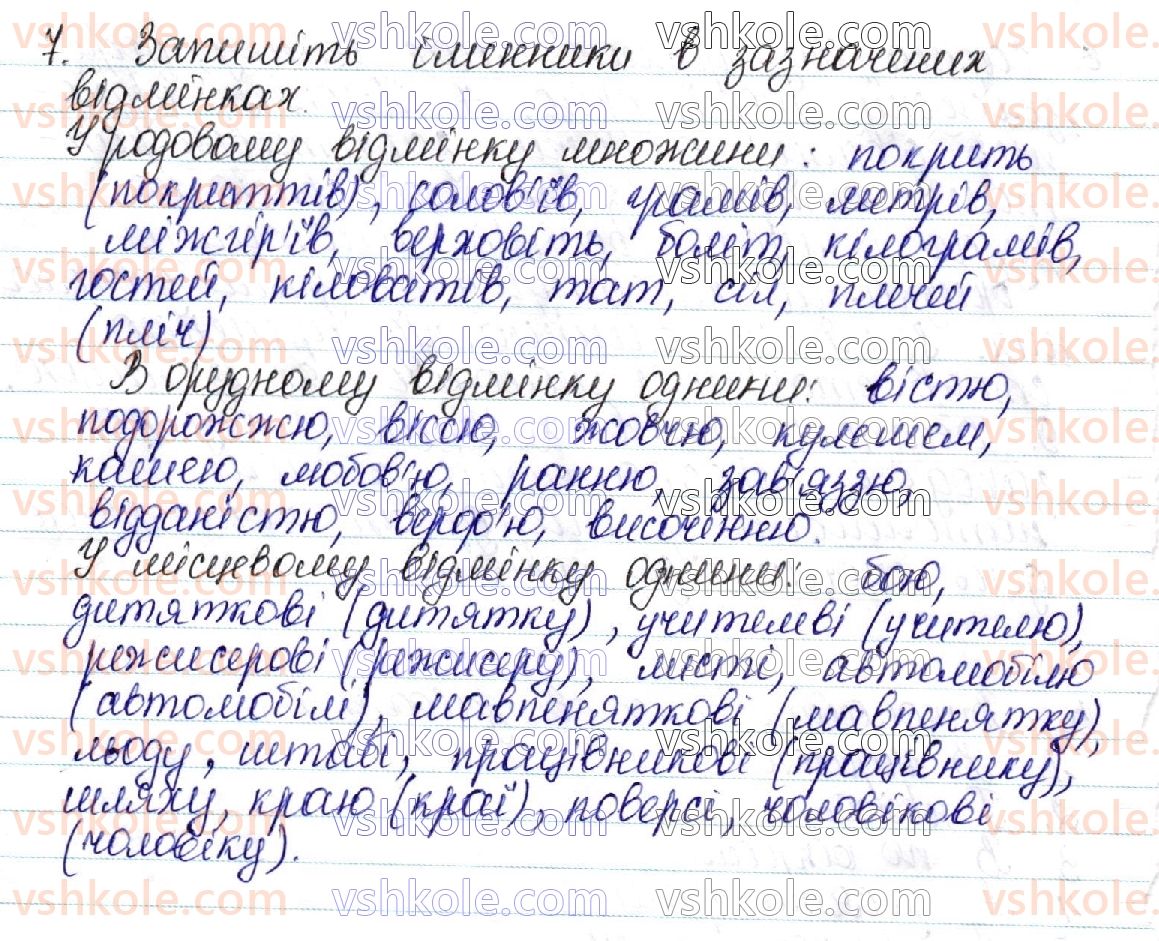 7. Запишіть іменники в зазначених
відмінках.
У родовому відмінку множини: покрить
(покриттів), солов'їв, грамів, метрів,
міжгір'їв, верховіть, боліт, кілограмів,
гостей, кіловатів, тат, сіл, плечей
(пліч)
В орудному відмінку однини: вістю,
подорожжю, віссю, жовчю, кулешем,
кашею, любов'ю, ранню, зав'яззю,
відданістю, верф'ю, височінню.
У місцевому відмінку однини: бою,
дитяткові (дитятку), учителеві (учителю),
режисерові (режисеру), місті, автомобілю
(автомобілі), мавпеняткові (мавпенятку),
льоду, штабі, працівникові (працівнику),
шляху, краю (краї), поверсі, чоловікові
(чоловіку).
vshkole.com